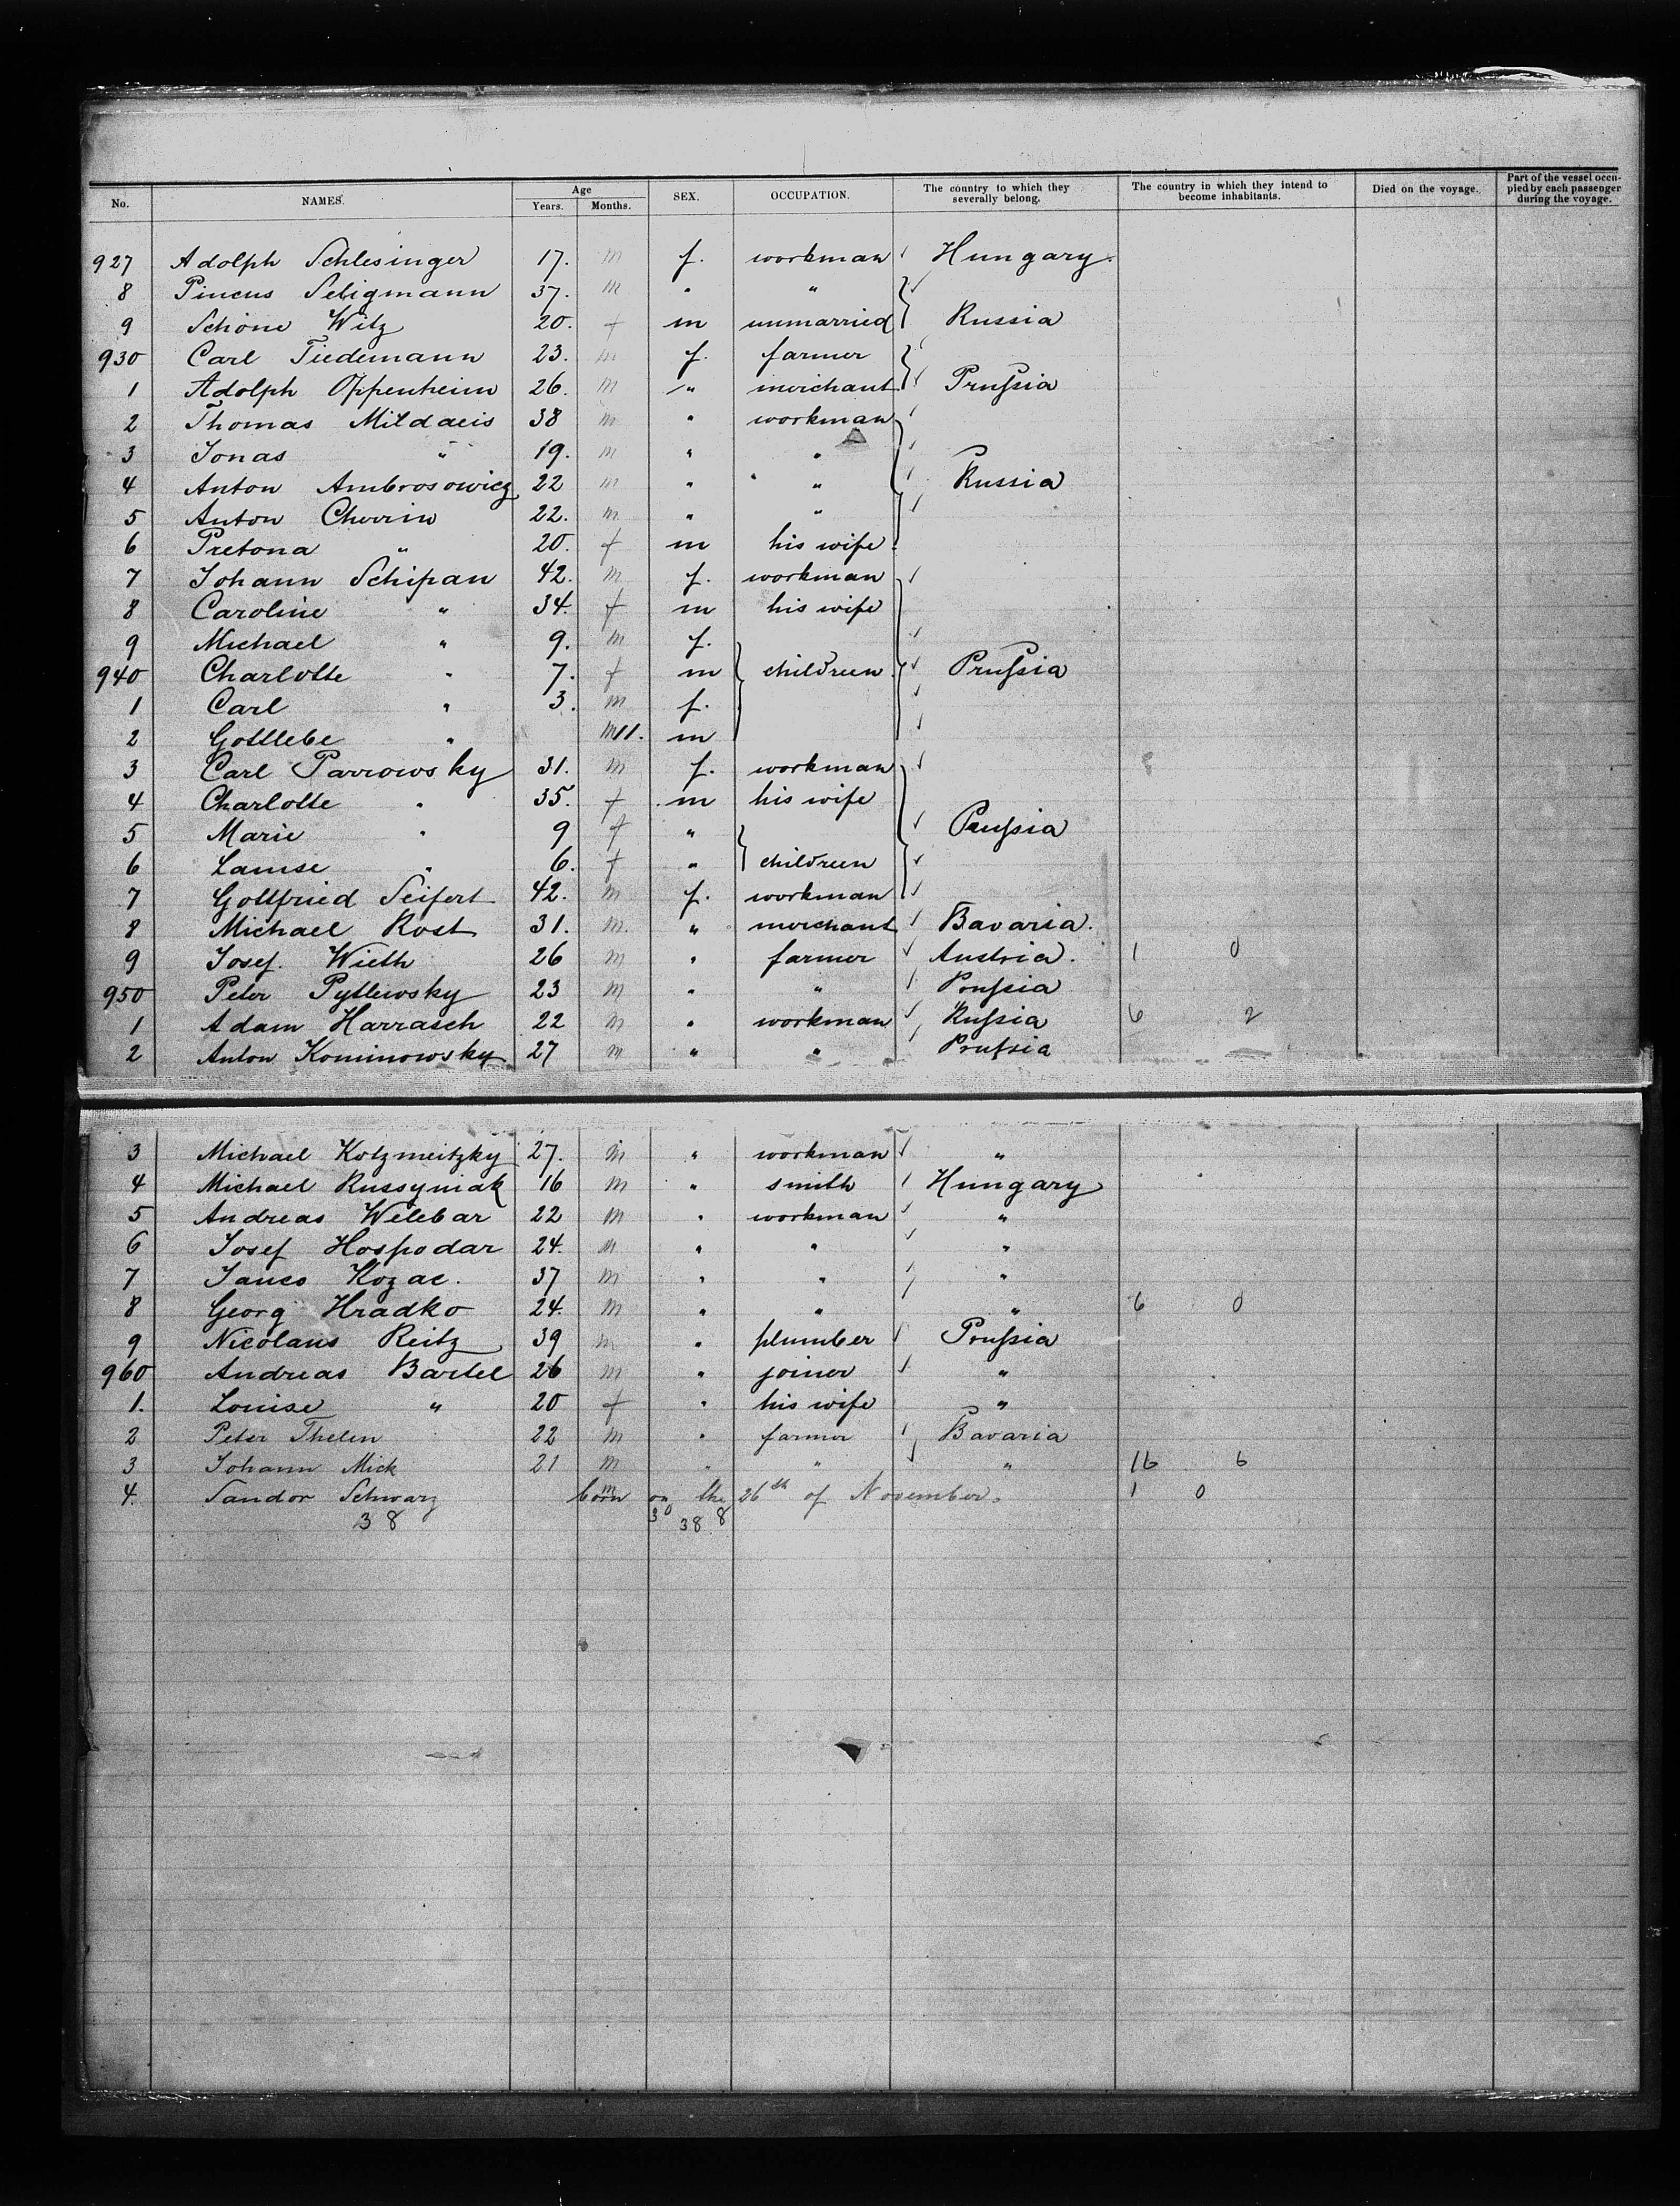 No. NAMES. Age Years. Months. SEX. OCCUPATION. The country to which they severally belong. The country in which they intend to become inhabitants. Died on the voyage. Part of the vessel occupied by each passenger during the voyage.
927 Adolph Schlesinger 17. m f. workman Hungary.
8 Pincus Seligmann 37. m " "
9 Schöne Witz 20. f m unmarried Russia
930 Carl Tiedemann 23. m f. farmer
1 Adolph Oppenheim 26. m " merchant Prussia
2 Thomas Mildaeis 38 m " workman
3 Jonas " 19. m " "
4 Anton Ambrosowicz 22 m " " Russia
5 Anton Cherrin 22. m " "
6 Pretona " 20. f m his wife
7 Johann Schipan 42. m f. workman
8 Caroline " 34. f m his wife
9 Michael " 9. m f.
940 Charlotte " 7. f m childreen Prussia
1 Carl " 3. m f.
2 Gottlebe " m 11. m
3 Carl Parrowsky 31. m f. workman
4 Charlotte " 35. f m his wife
5 Marie " 9 f " Prussia
6 Lauise " 6. f " childreen
7 Gottfried Seifert 42. m f. workman
8 Michael Rost 31. m. " merchant Bavaria.
9 Josef. Wieth 26 m " farmer Austria. 1 0
950 Peter Pytlewsky 23 m " " Prussia
1 Adam Harrasch 22 m " workman Russia 6 2
2 Anton Kominowsky 27 m " " Prussia
3 Michael Kotzmeitzky 27. m " workman "
4 Michael Russyniak 16 m " smith Hungary
5 Andreas Welebar 22 m " workman "
6 Josef Hospodar 24. m " " "
7 Janco Kozac. 37 m " " "
8 Georg Hradko 24. m " " " 6 0
9 Nicolaus Reitz 39 m " plumber Prussia
960 Andreas Bartel 26 m " joiner "
1. Louise " 20 f " his wife "
2 Peter Thelen 22 m " farmer Bavaria
3 Johann Mick 21 m " " " 16 6
4. Sandor Schwarz m born on the 26th of November. 1 0
38 30 38 8